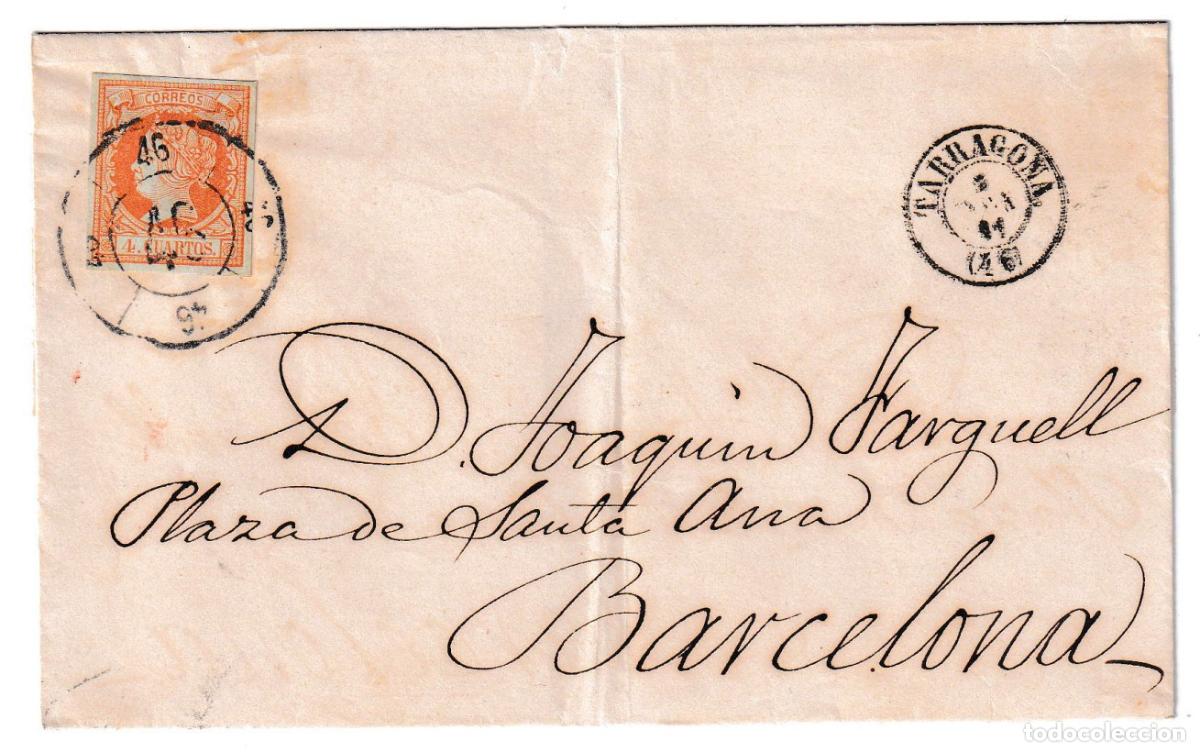 CORREOS
4. CUARTOS.
46
46
46
46
TARRAGONA.
(46)
D. Joaquin Farguell
Plaza de Santa Ana
Barcelona
todocoleccion